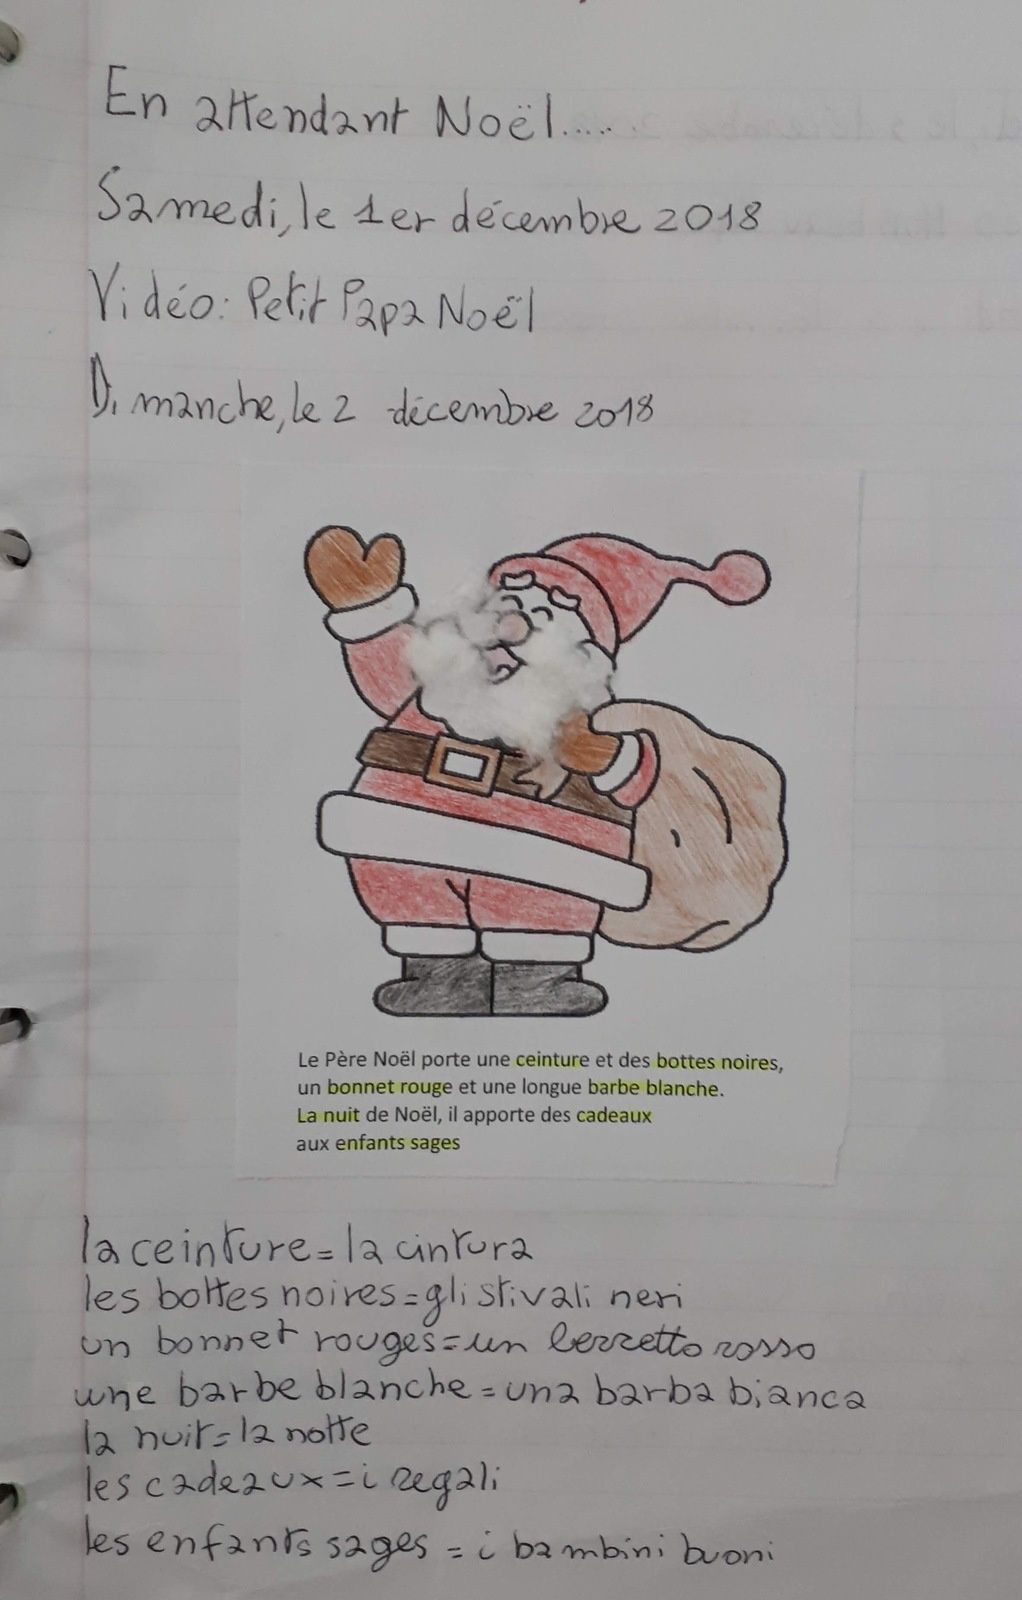 En attendant Noël.....
Samedi, le 1er décembre 2018
Vidéo: Petit Papa Noël
Dimanche, le 2 décembre 2018
Le Père Noël porte une ceinture et des bottes noires,
un bonnet rouge et une longue barbe blanche.
La nuit de Noël, il apporte des cadeaux
aux enfants sages
la ceinture = la cintura
les bottes noires = gli stivali neri
un bonnet rouges = un berretto rosso
une barbe blanche = una barba bianca
la nuit = la notte
les cadeaux = i regali
les enfants sages = i bambini buoni